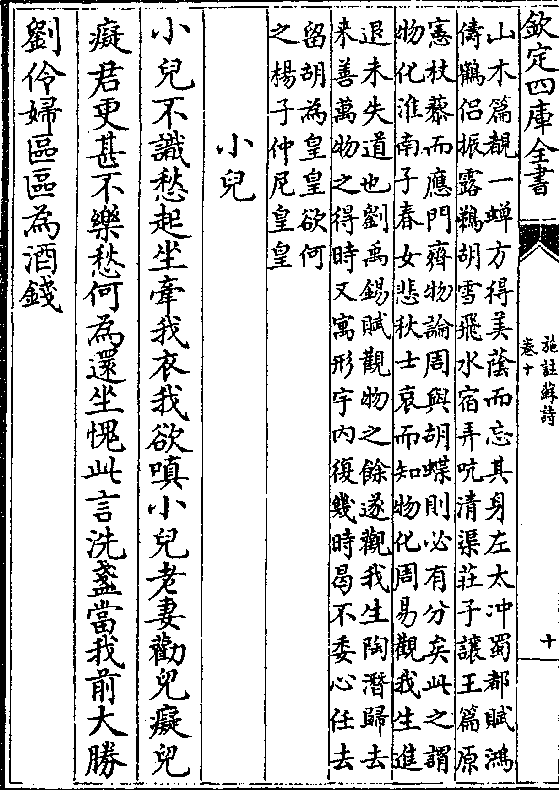 欽定四庫全書
施註蘇詩
卷十
十
山木篇覩一蟬方得美蔭而忘其身左太冲蜀都賦鴻
儔鵠侣振鷺鵜胡雪飛水宿弄吭清渠莊子讓王篇原
憲杖藜而應門齊物論周與胡蝶則必有分矣此之謂
物化淮南子春女悲秋士哀而知物化周易觀我生進
退未失道也劉禹錫賦觀物之餘遂觀我生陶潛歸去
来善萬物之得時又寓形宇内復幾時曷不委心任去
留胡為皇皇欲何
之楊子仲尼皇皇
小兒
小兒不識愁起坐牽我衣我欲嗔小兒老妻勸兒癡兒
癡君更甚不樂愁何為還坐愧此言洗盞當我前大勝
劉伶婦區區為酒錢